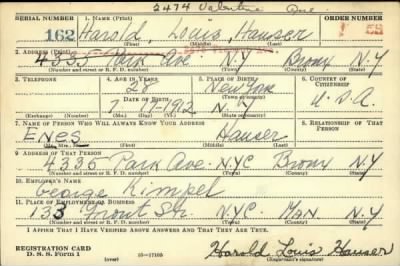 2474 Valentine Ave.
SERIAL NUMBER 1. NAME (Print) ORDER NUMBER
162 Harold, Louis, Hauser
(First) (Middle) (Last)
2. ADDRESS (Print)
4335 Park Ave. N.Y. Bronx N.Y
(Number and street or R. F. D. number) (Town) (County) (State)
3. TELEPHONE 4. AGE IN YEARS 5. PLACE OF BIRTH 6. COUNTRY OF CITIZENSHIP
28 New York
DATE OF BIRTH (Town or county)
7 17 1912 N.Y. U.S.A.
(Exchange) (Number) (Mo.) (Day) (Yr.) (State or country)
7. NAME OF PERSON WHO WILL ALWAYS KNOW YOUR ADDRESS 8. RELATIONSHIP OF THAT PERSON
Enes Hauser
(Mr., Mrs., Miss) (First) (Middle) (Last)
9. ADDRESS OF THAT PERSON
4335 Park Ave. N.Y.C Bronx N.Y
(Number and street or R. F. D. number) (Town) (County) (State)
10. EMPLOYER'S NAME
George Kimpel
11. PLACE OF EMPLOYMENT OR BUSINESS
133 Front St. N.Y.C. Man N.Y.
(Number and street or R. F. D. number) (Town) (County) (State)
I AFFIRM THAT I HAVE VERIFIED ABOVE ANSWERS AND THAT THEY ARE TRUE.
REGISTRATION CARD
D. S. S. Form 1 (over) 16—17105 Harold Louis Hauser
(Registrant's signature)